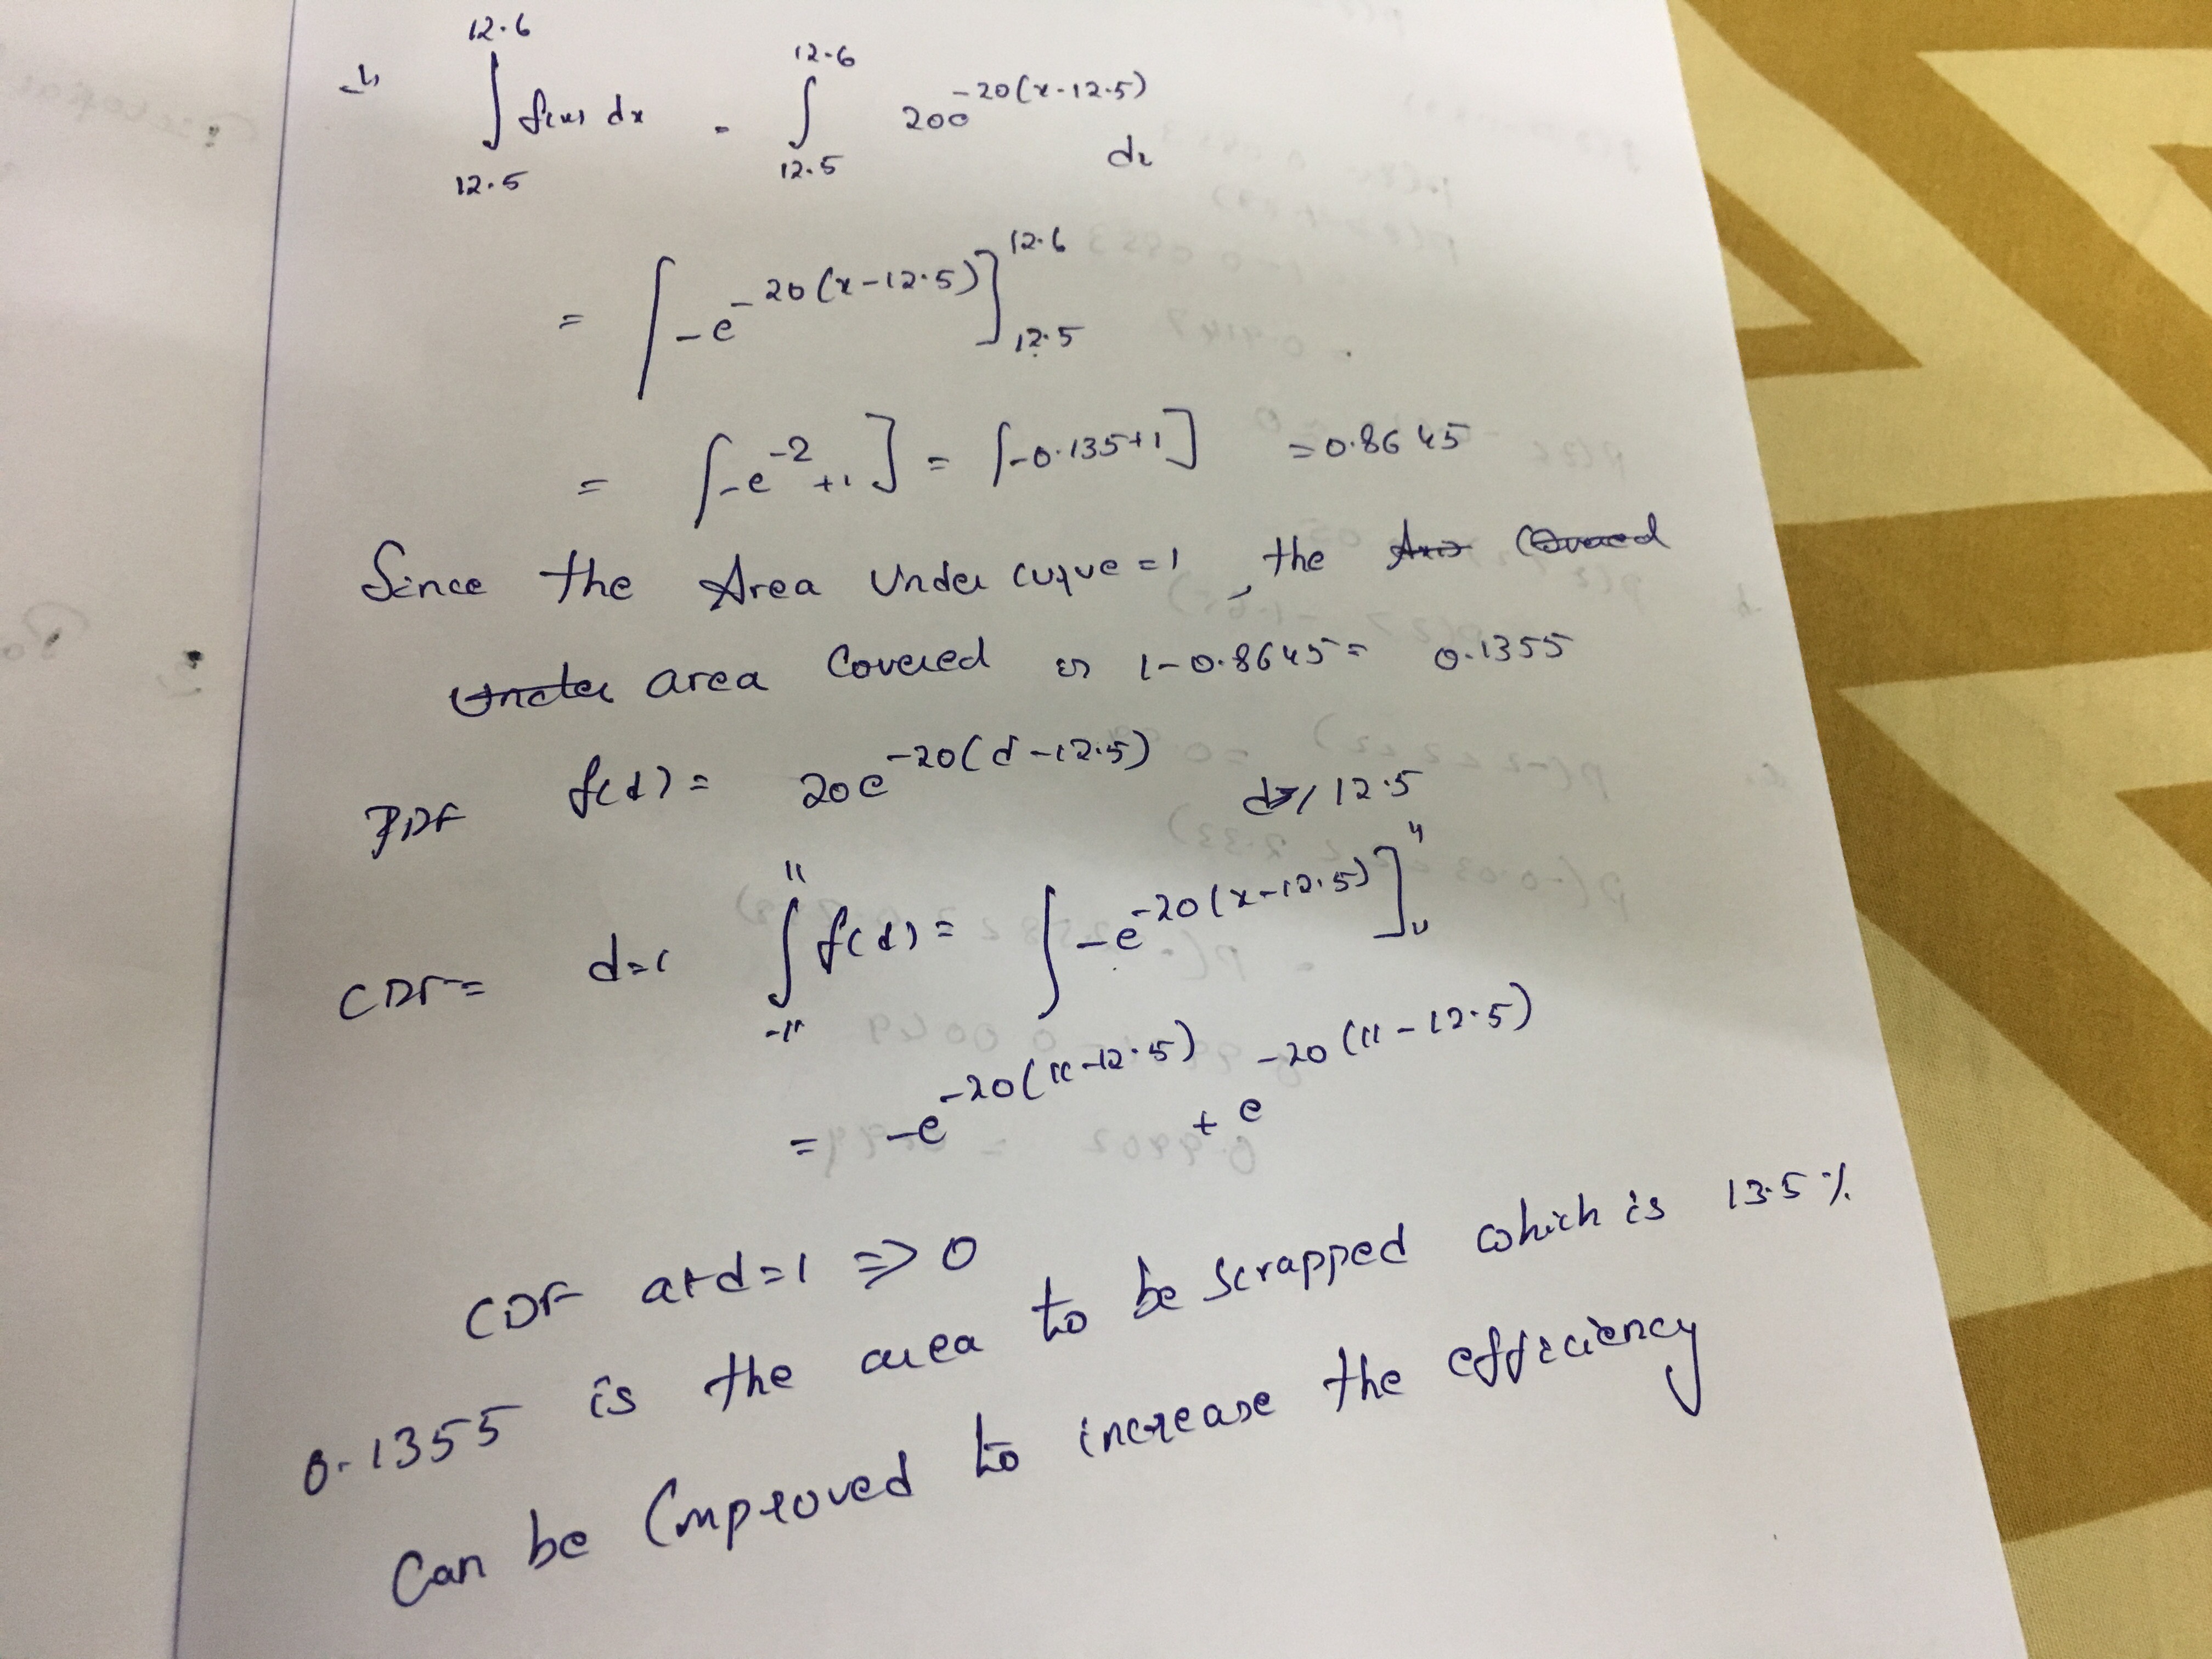 1, ∫_{12.5}^{12.6} f(x) dx = ∫_{12.5}^{12.6} 20e^{-20(x-12.5)} dx
= [-e^{-20(x-12.5)}]_{12.5}^{12.6}
= [-e^{-2}+1] = [-0.135+1] = 0.8645
Since the Area under curve = 1, the Area Covered
Under area Covered is 1-0.8645 = 0.1355
PDF f(d) = 20e^{-20(d-12.5)} d>, 12.5
CDF = d=1 ∫_{-11}^{11} f(d) = [-e^{-20(x-12.5)}]_{11}^{11}
= -e^{-20(11-12.5)} + e^{-20(11-12.5)}
CDF at d=1 => 0
0.1355 is the area to be scrapped which is 13.5%
Can be improved to increase the efficiency